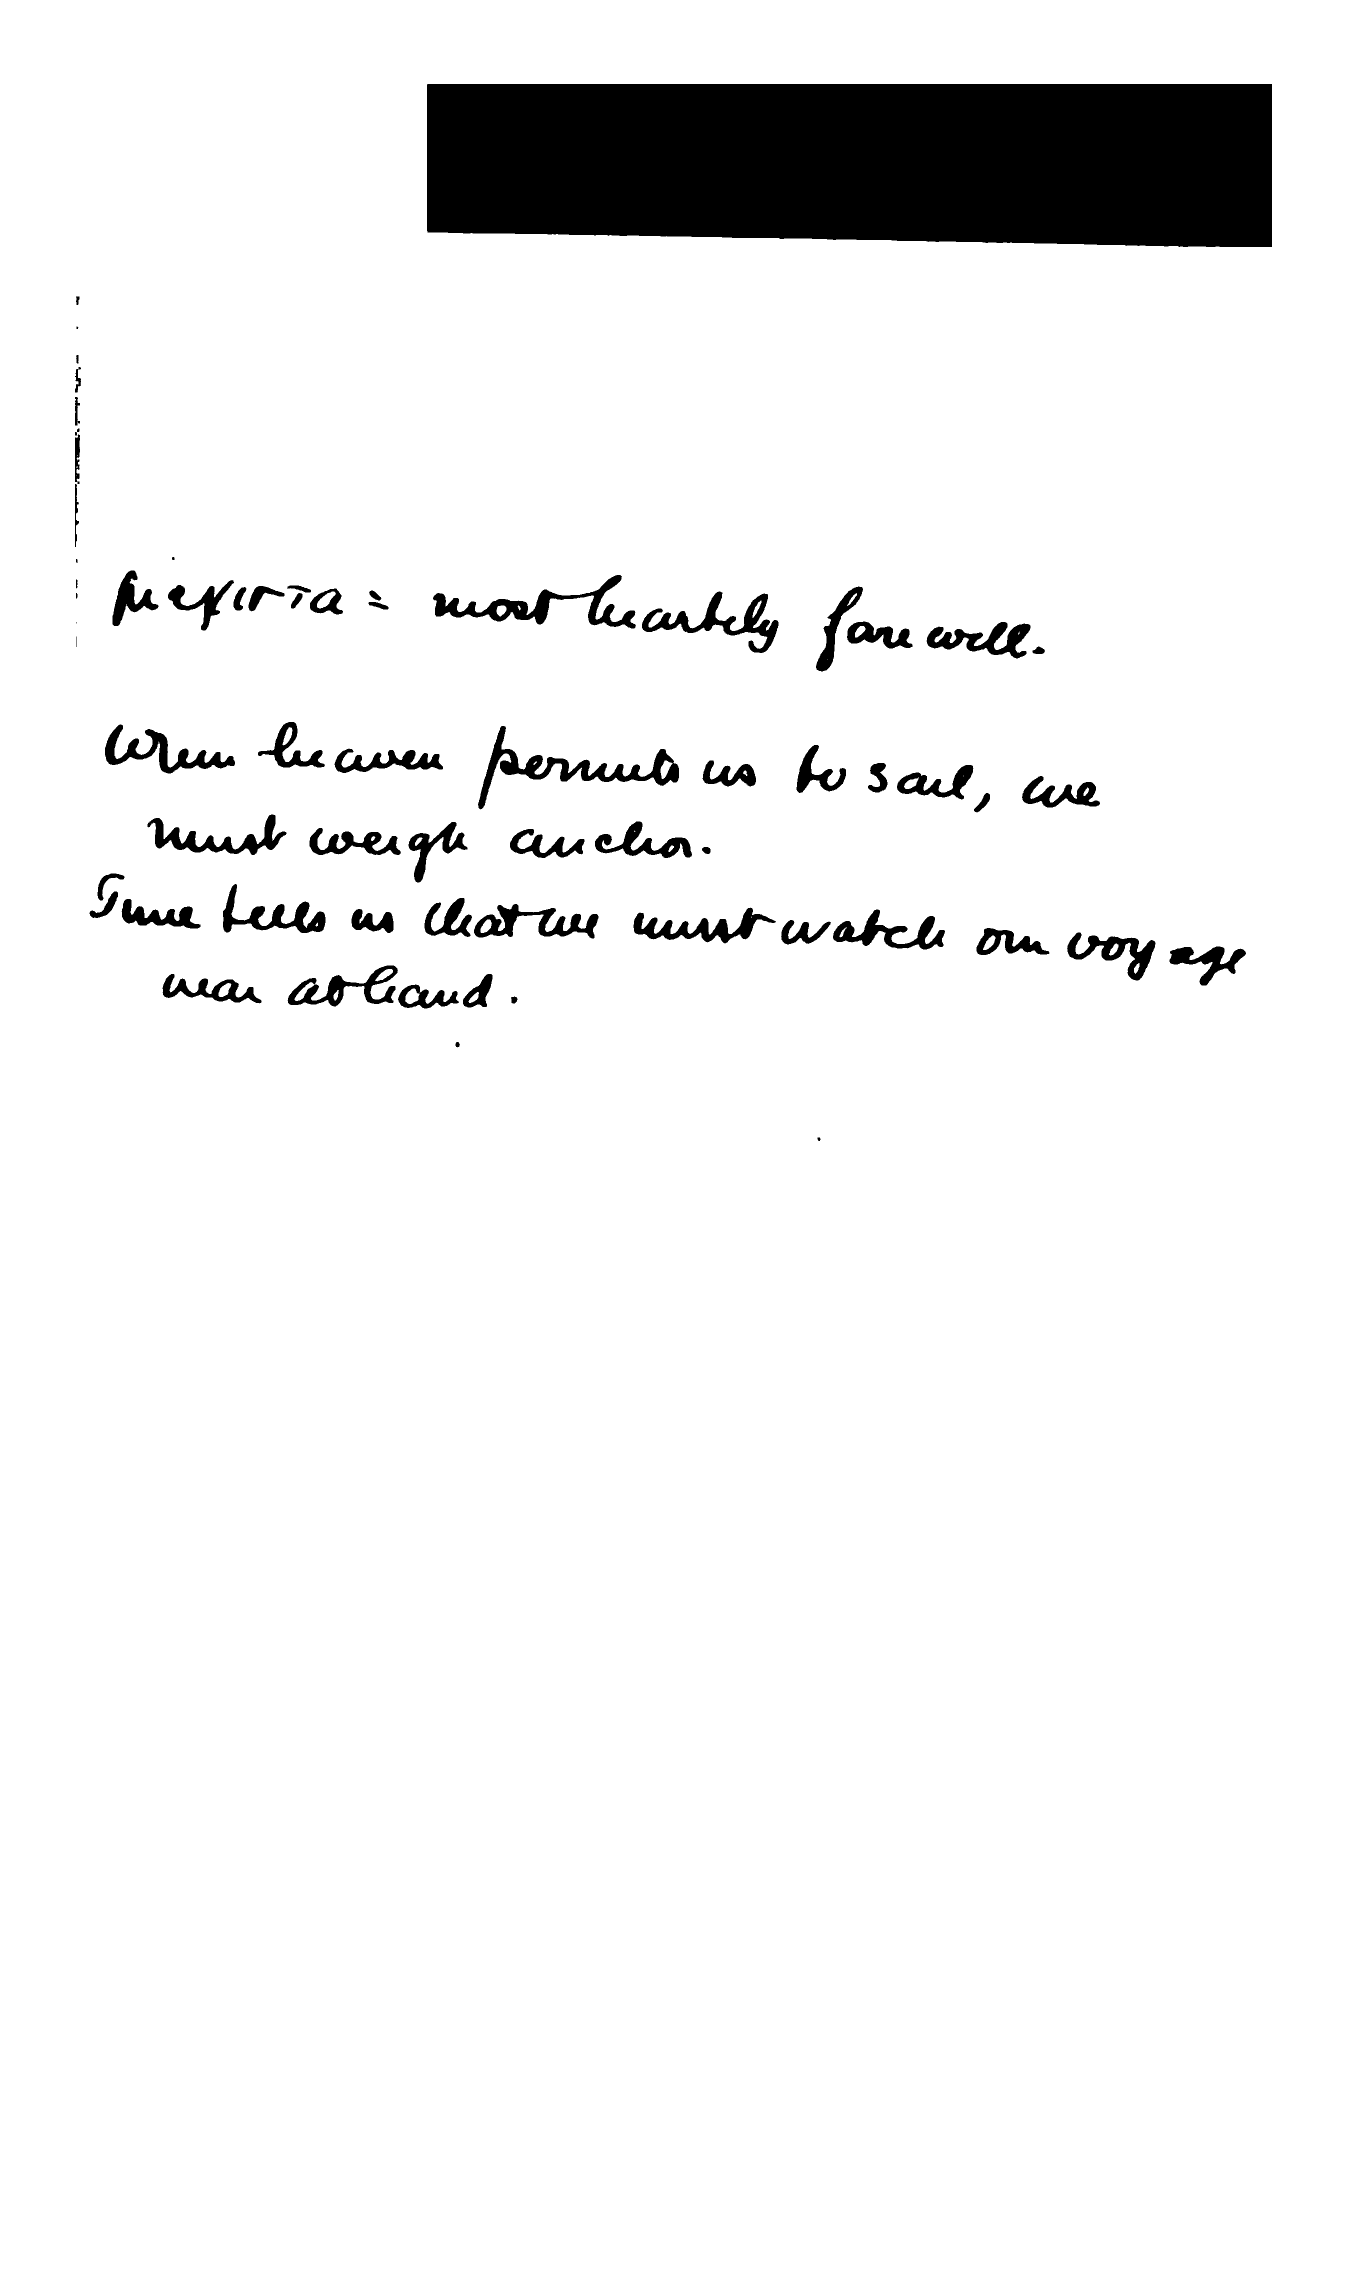 = most heartely farewell.
When heaven permits us to sail, we
must weigh anchor.
Time tells us that we must watch our voyage
near at hand.